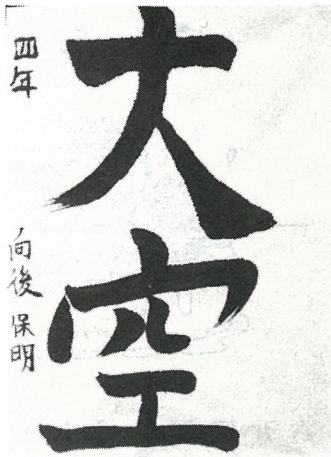 大空
四年 向後保明